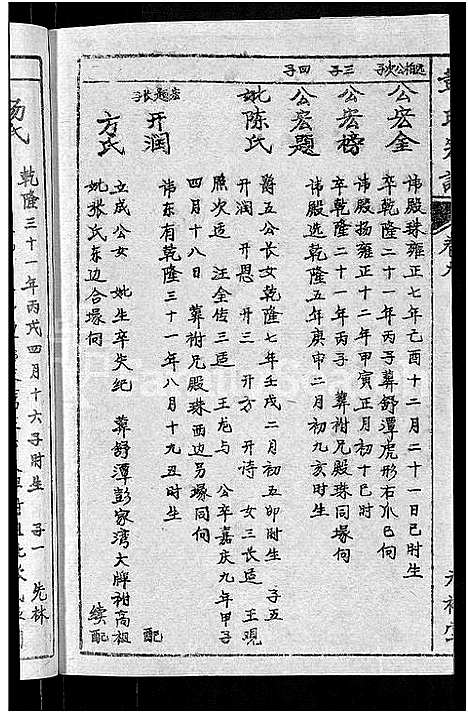 远柏公次子
公宏全
讳殿珠雍正七年己酉十二月二十一日巳时生
卒乾隆二十一年丙子葬舒潭虎形右爪巳向
三子
公宏榜
讳殿扬雍正十二年甲寅正月初十巳时
卒乾隆二十一年丙子 葬祔兄殿珠同塚同向
四子
公宏题
讳殿选乾隆五年庚申二月初九亥时生
妣陈氏
爵五公长女乾隆七年壬戌二月初五卯时生 子五
开润 开恩 开三 开方 开诗 女三长适 王观
照次适 汪全佐三适 王龙与 公卒嘉庆九年甲子
四月十八日 葬祔兄殿珠西边另塚同向
宏题长子
开润
讳东有乾隆三十一年八月十九丑时生
配
方氏
立成公女 妣生卒失纪 葬舒潭彭家湾大牌祔高祖
妣张氏东边合塚向
续配
杨氏
乾隆三十一年丙戌四月十六子时生 子一 先林